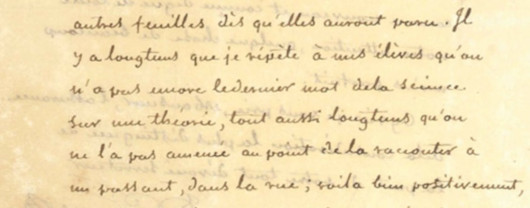 autres feuilles, dès qu'elles auront paru. Il
y a longtems que je répète à mes élèves qu'on
n'a pas encore le dernier mot de la science
sur une théorie, tout aussi longtems qu'on
ne l'a pas amenée au point de la raconter à
un passant, dans la rue; voila bien positivement,